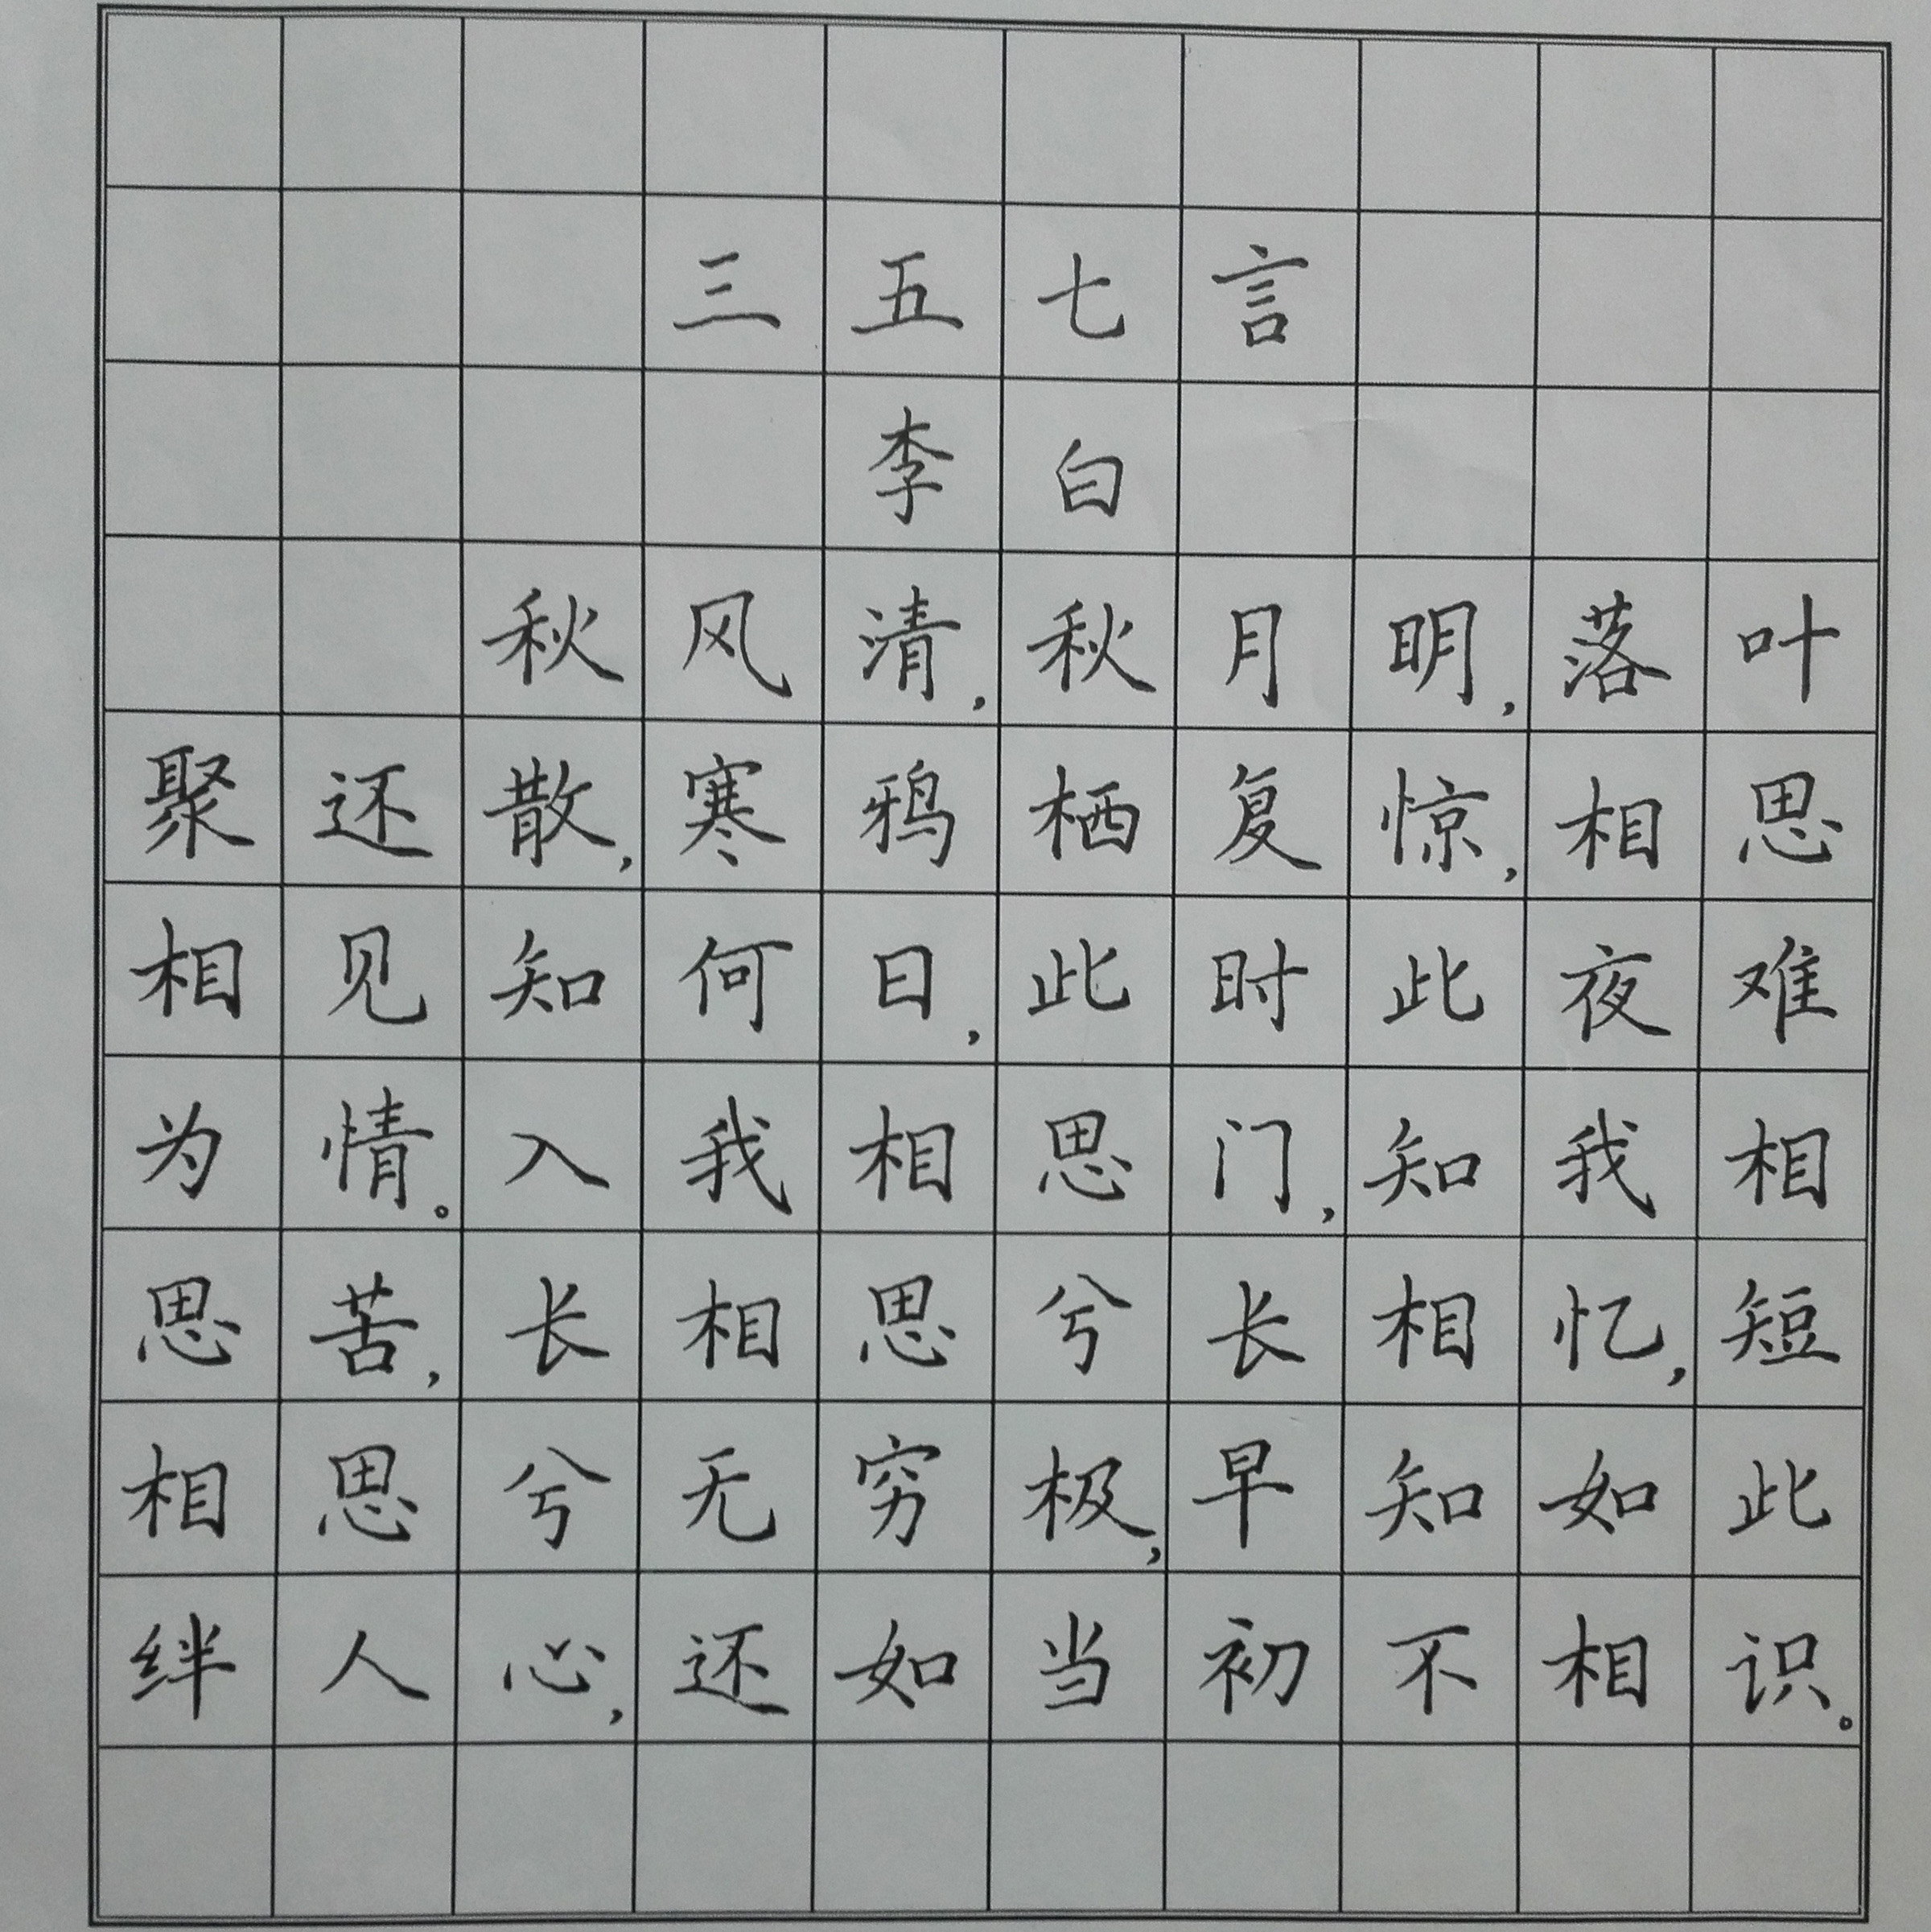 三五七言
李白
秋风清,秋月明,落叶
聚还散,寒鸦栖复惊,相思
相见知何日,此时此夜难
为情。入我相思门,知我相
思苦,长相思兮长相忆,短
相思兮无穷极,早知如此
绊人心,还如当初不相识。